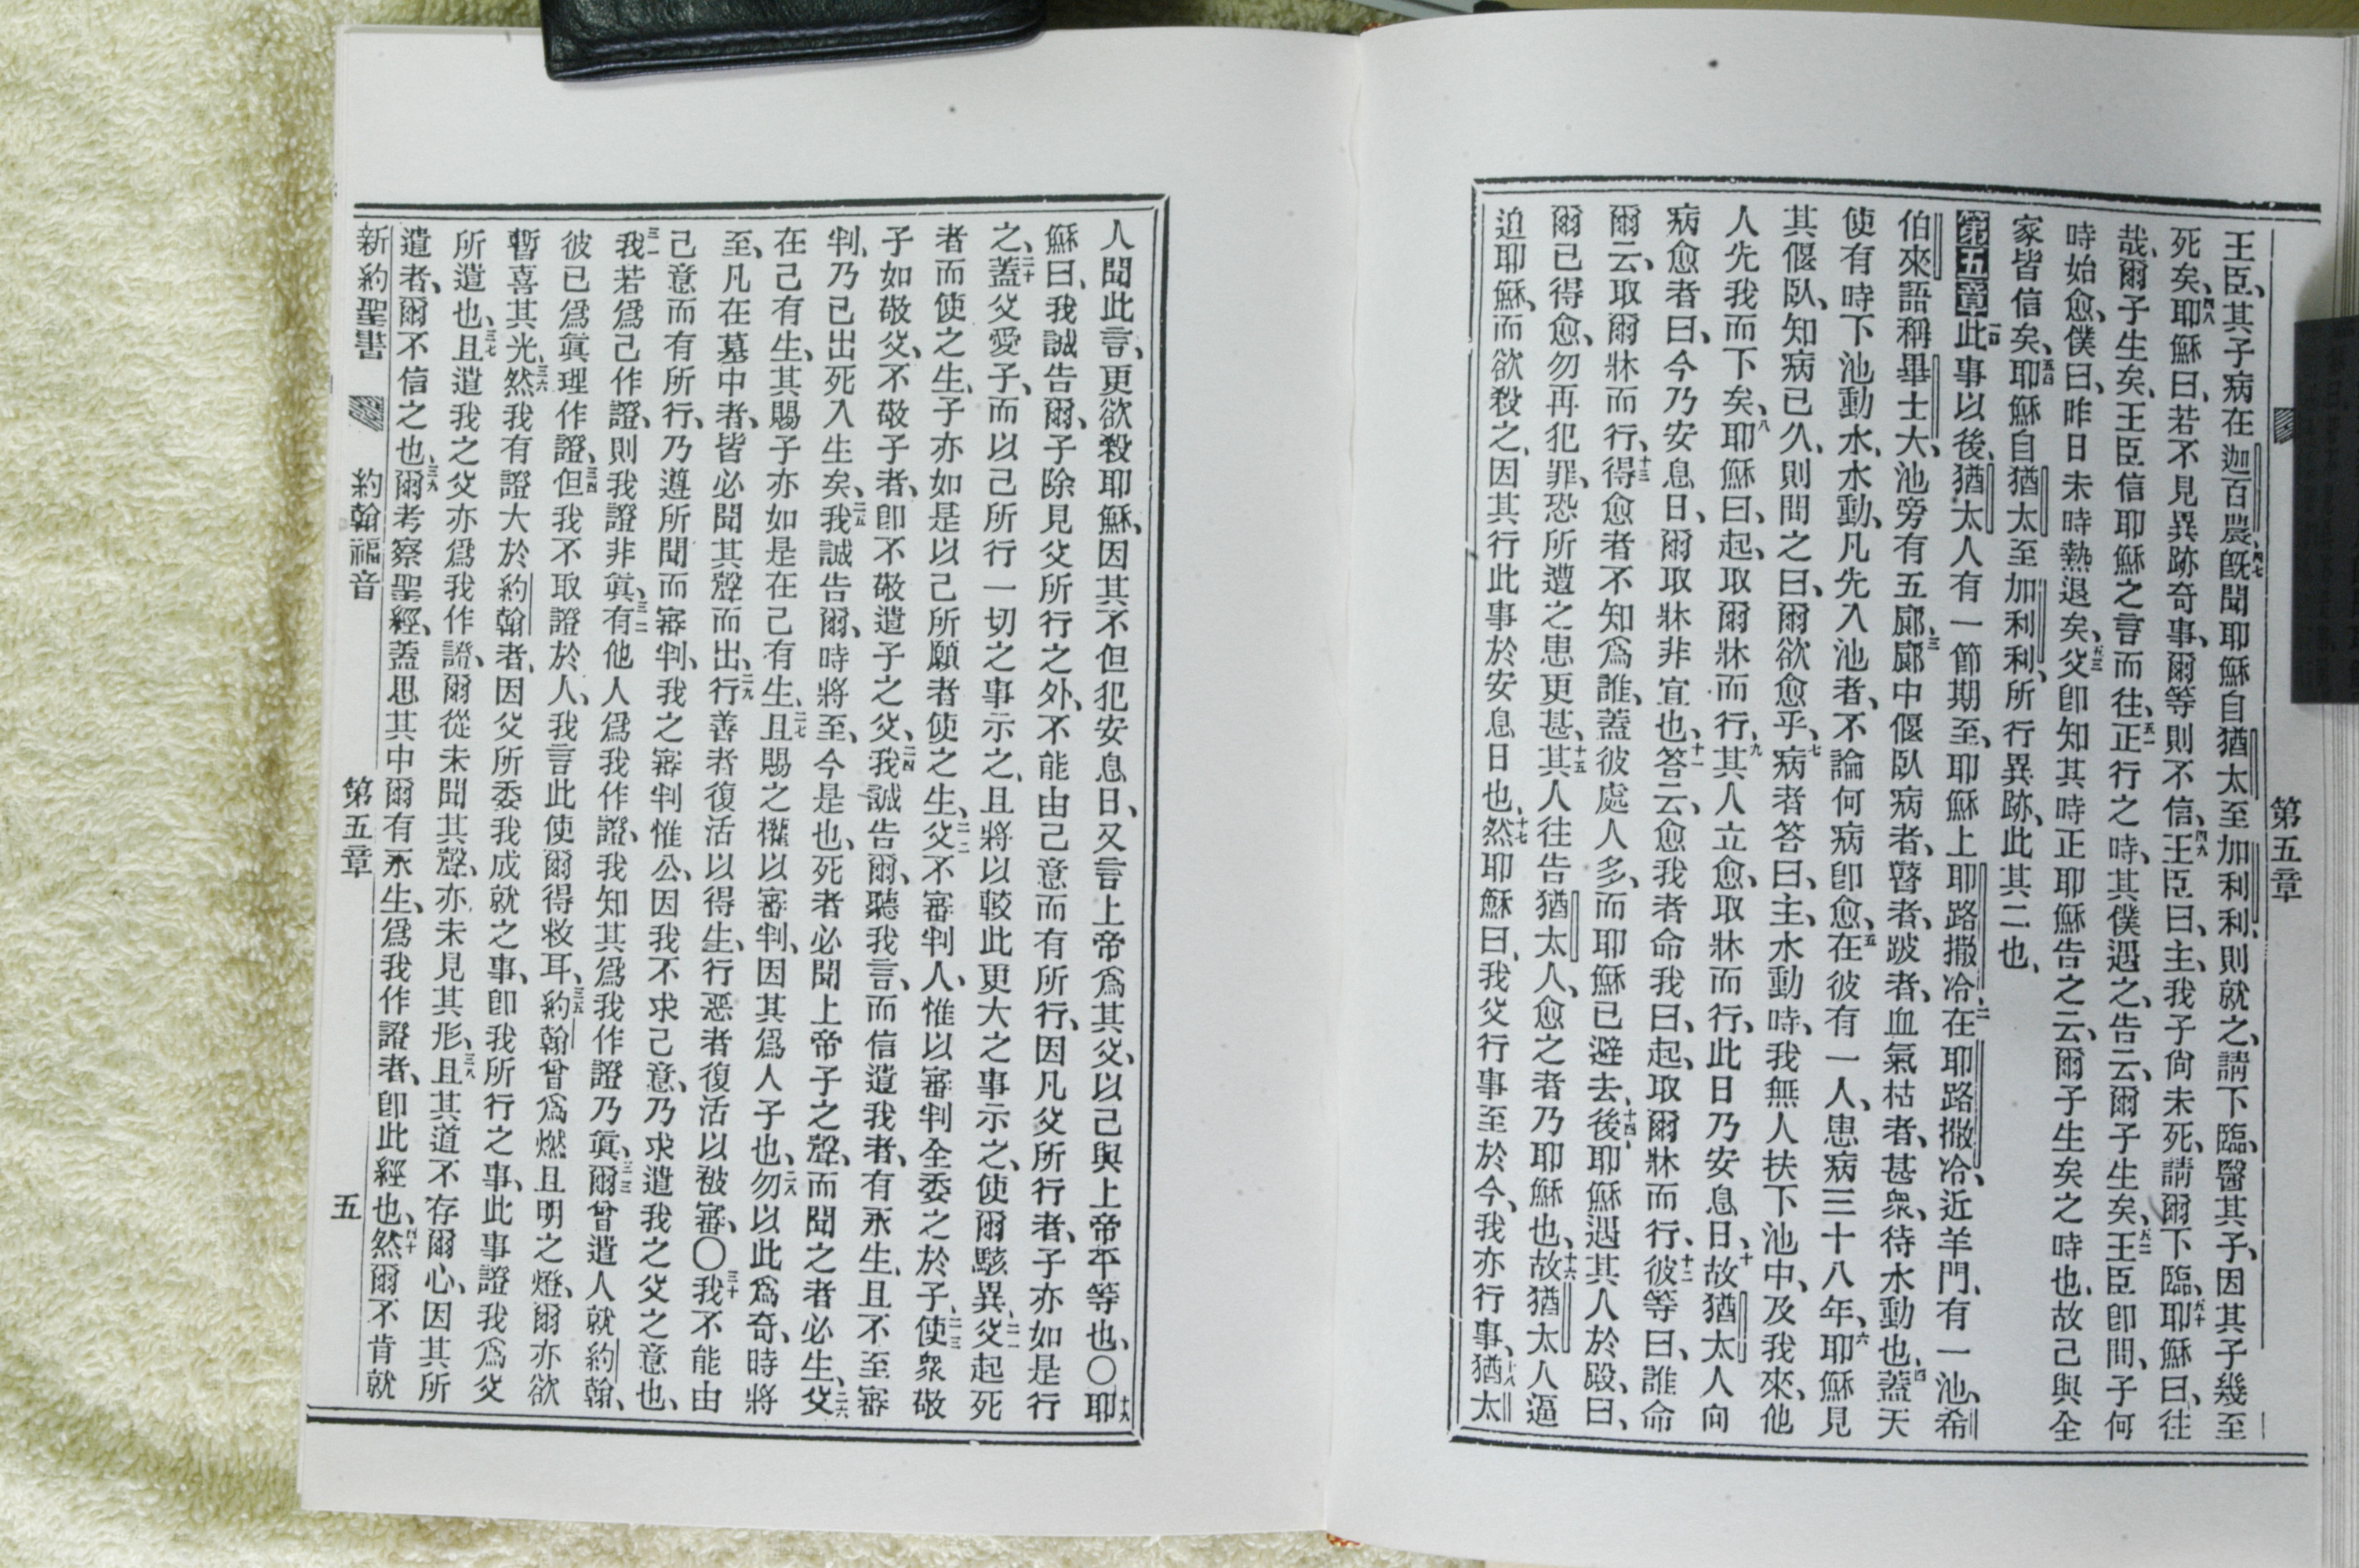 第五章
王臣、其子病在迦百農、四七既聞耶穌自猶太至加利利、則就之、請下臨、醫其子、因其子幾至
死矣、四八耶穌曰、若不見異跡奇事、爾等則不信、四九王臣曰、主、我子尙未死、請爾下臨、五十耶穌曰、往
哉、爾子生矣、王臣信耶穌之言而往、五一正行之時、其僕遇之、告云、爾子生矣、五二王臣卽問、子何
時始愈、僕曰、昨日未時熱退矣、五三父卽知其時正耶穌告之云、爾子生矣之時也、故己與全
家皆信矣、五四耶穌自猶太至加利利、所行異跡、此其二也、
第五章 一此事以後、猶太人有一節期至、耶穌上耶路撒冷、二在耶路撒冷、近羊門、有一池、希
伯來語稱畢士大、池旁有五廊、三廊中偃臥病者、瞽者、跛者、血氣枯者、甚衆、待水動也、四蓋天
使有時下池動水、水動、凡先入池者、不論何病卽愈、五在彼有一人、患病三十八年、六耶穌見
其偃臥、知病已久、則問之曰、爾欲愈乎、七病者答曰、主、水動時、我無人扶下池中、及我來、他
人先我而下矣、八耶穌曰、起、取爾牀而行、九其人立愈、取牀而行、此日乃安息日、十故猶太人向
病愈者曰、今乃安息日、爾取牀非宜也、十一答云、愈我者命我曰、起、取爾牀而行、十二彼等曰、誰命
爾云、取爾牀而行、十三得愈者不知爲誰、蓋彼處人多、而耶穌已避去、十四後耶穌遇其人於殿、曰、
爾已得愈、勿再犯罪、恐所遭之患更甚、十五其人往告猶太人、愈之者乃耶穌也、十六故猶太人逼
迫耶穌、而欲殺之、因其行此事於安息日也、十七然耶穌曰、我父行事至於今、我亦行事、十八猶太
人聞此言、更欲殺耶穌、因其不但犯安息日、又言上帝爲其父、以己與上帝平等也、〇十九耶
穌曰、我誠告爾、子除見父所行之外、不能由己意而有所行、因凡父所行者、子亦如是行
之、二十蓋父愛子、而以己所行一切之事示之、且將以較此更大之事示之、使爾駭異、二一父起死
者而使之生、子亦如是以己所願者使之生、二二父不審判人、惟以審判全委之於子、二三使衆敬
子如敬父、不敬子者、卽不敬遣子之父、二四我誠告爾、聽我言、而信遣我者、有永生、且不至審
判、乃已出死入生矣、二五我誠告爾、時將至、今是也、死者必聞上帝子之聲、而聞之者必生、二六父
在己有生、其賜子亦如是在己有生、二七且賜之權以審判、因其爲人子也、二八勿以此爲奇、時將
至、凡在墓中者、皆必聞其聲而出、二九行善者復活以得生、行惡者復活以被審、〇三十我不能由
己意而有所行、乃遵所聞而審判、我之審判惟公、因我不求己意、乃求遣我之父之意也、
三一我若爲己作證、則我證非眞、三二有他人爲我作證、我知其爲我作證乃眞、三三爾曾遣人就約翰、
彼已爲眞理作證、三四但我不取證於人、我言此使爾得救耳、三五約翰曾爲燃且明之燈、爾亦欲
暫喜其光、三六然我有證大於約翰者、因父所委我成就之事、卽我所行之事、此事證我爲父
所遣也、三七且遣我之父亦爲我作證、爾從未聞其聲、亦未見其形、三八且其道不存爾心、因其所
遣者、爾不信之也、三九爾考察聖經、蓋思其中爾有永生、爲我作證者、卽此經也、四十然爾不肯就
新約聖書 約翰福音 第五章 五